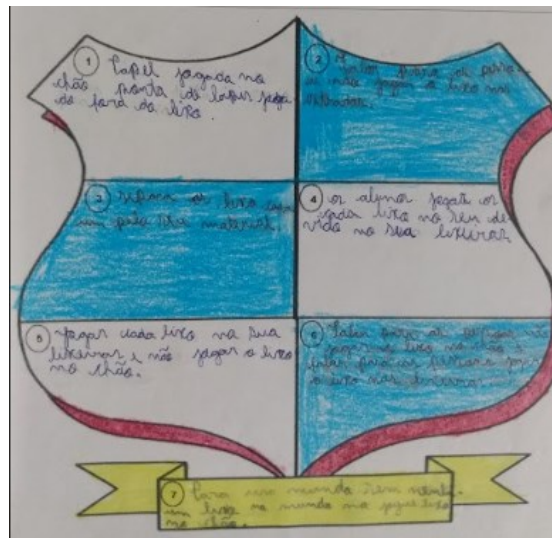 1 Papel jogada no
chão ponta de lapis joga
do fora do lixo.
2
falar para as pesso
as não jogar o lixo nas
3 separa os lixo cada
um pelo seu material.
4 os alunos jogar os
cada lixo no seu de
vido no sua lixeiras
5 jogar cada lixo na sua
lixeiras e não jogar o lixo
no chão.
6 Falar para as pessoas não
jogar no lixo no chão e
falar para as pessoas jogar
o lixo nas lixeiras.
7 Para um mundo sem
um lixo no mundo não jogue lixo
no chão.